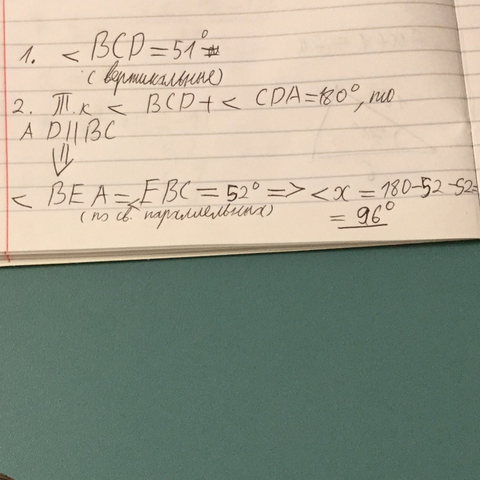 1. < BCD = 51°
(вертикальные)
2. Т.к < BCD + < CDA = 180°, то
A D || BC
⇓
< BEA = < EBC = 52° => < x = 180 - 52 - 52 =
(по св. параллельных)
= 96°